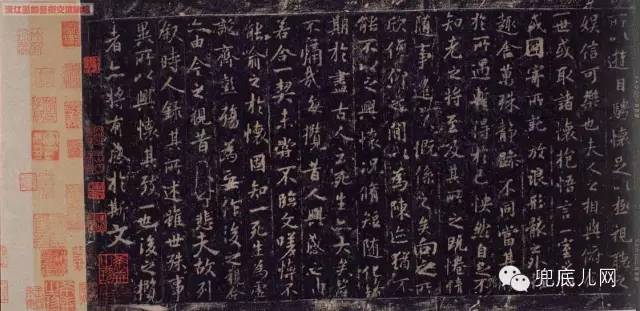 所以遊目騁懷足以極視聽之
娛信可樂也夫人之相與俯
一世或取諸懷抱悟言一室之
或因寄所託放浪形骸之外
趣舍萬殊靜躁不同當其
於所遇蹔得於己怏然自足不
知老之將至及其所之既惓情
隨事遷感慨係之矣向之所
欣俛仰之間以為陳迹猶不
能不以之興懷況脩短隨化終
期於盡古人云死生亦大矣豈
不痛哉每攬昔人興感之由
若合一契未嘗不臨文嗟悼不
能喻之於懷固知一死生為虛
誕齊彭殤為妄作後之視今
亦由今之視昔悲夫故列
敘時人錄其所述雖世殊事
異所以興懷其致一也後之攬
者亦將有感於斯文
兜底儿网